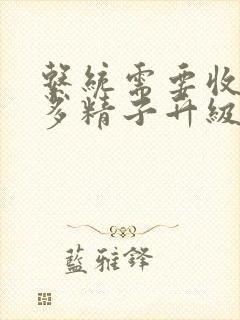 繫統需要收
多精子升級
藍雅鋒